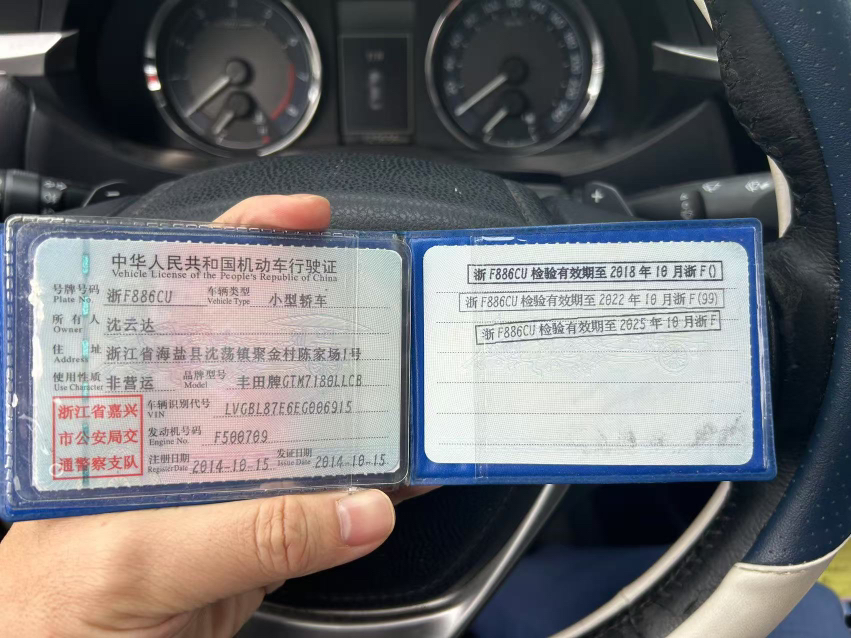 中华人民共和国机动车行驶证
Vehicle License of the People's Republic of China
号牌号码 浙F886CU 车辆类型 小型轿车
Plate No. Vehicle Type
所有人 沈云达
Owner
住址 浙江省海盐县沈荡镇聚金村陈家场1号
Address
使用性质 非营运 品牌型号 丰田牌GTM7180LLCB
Use Character Model
浙江省嘉兴
市公安局交
通警察支队
车辆识别代号 LVGBL87E6EG006915
VIN
发动机号码 F500709
Engine No.
注册日期 2014-10-15 发证日期 2014-10-15
Register Date Issue Date
浙F886CU 检验有效期至 2018 年 10 月浙 F()
浙F886CU 检验有效期至 2022 年 10 月浙 F(99)
浙F886CU 检验有效期至 2025 年 10 月浙 F